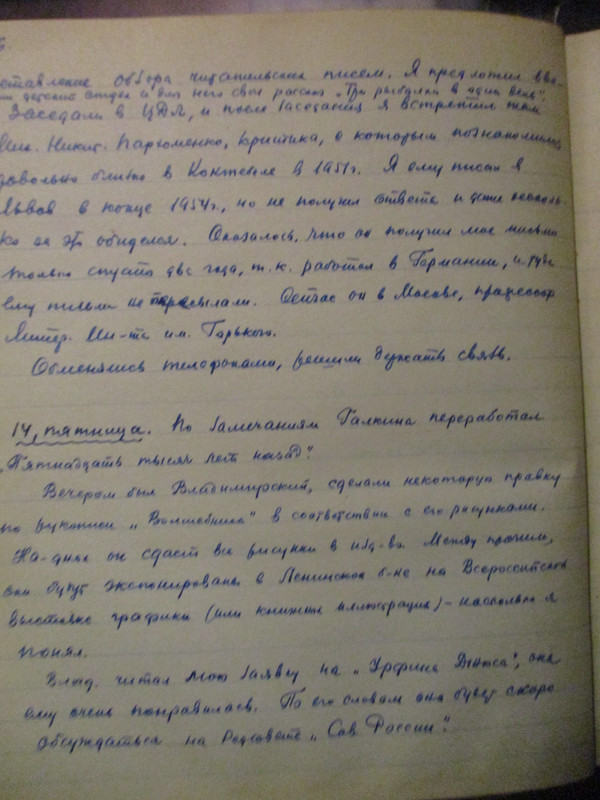 ставление обзора читательских писем. Я предложил вве-
сти детский отдел и дал него свой рассказ „Три рыбалки в один день".
Заседали в ЦДЛ, и после заседания я встретил там
Мих. Никит. Пархоменко, критика, с которым познакомился
довольно близко в Коктебеле в 1951г. Я ему писал в
Львов в конце 1954г., но не получил ответа и даже несколь-
ко на это обиделся. Оказалось, что он получил мое письмо
только спустя два года, т.к. работал в Германии, и туда
ему письма не пересылали. Сейчас он в Москве, профессор
Литер. Ин-та им. Горького.
Обменялись телефонами, решили держать связь.
14, пятница. По замечаниям Галкина переработал
„Пятнадцать тысяч лет назад".
Вечером был Владимирский, сделали некоторую правку
по рукописи „Волшебника" в соответствии с его рисунками.
На-днях он сдаст все рисунки в изд-во. Между прочим,
они будут экспонированы в Ленинской б-ке на Всероссийской
выставке графики (или книжной иллюстрации) – насколько я
понял.
Влад. читал мою заявку на „Урфина Джюса", она
ему очень понравилась. По его словам она будет скоро
обсуждаться на редсовете „Сов. России".